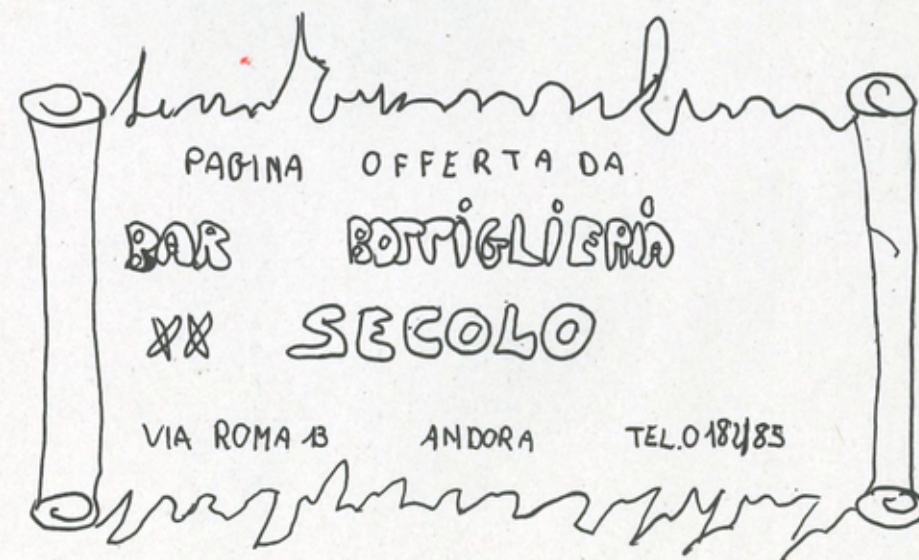 PAGINA OFFERTA DA
BAR BOTTIGLIERIA
XX SECOLO
VIA ROMA 13 ANDORA TEL. 0182/85